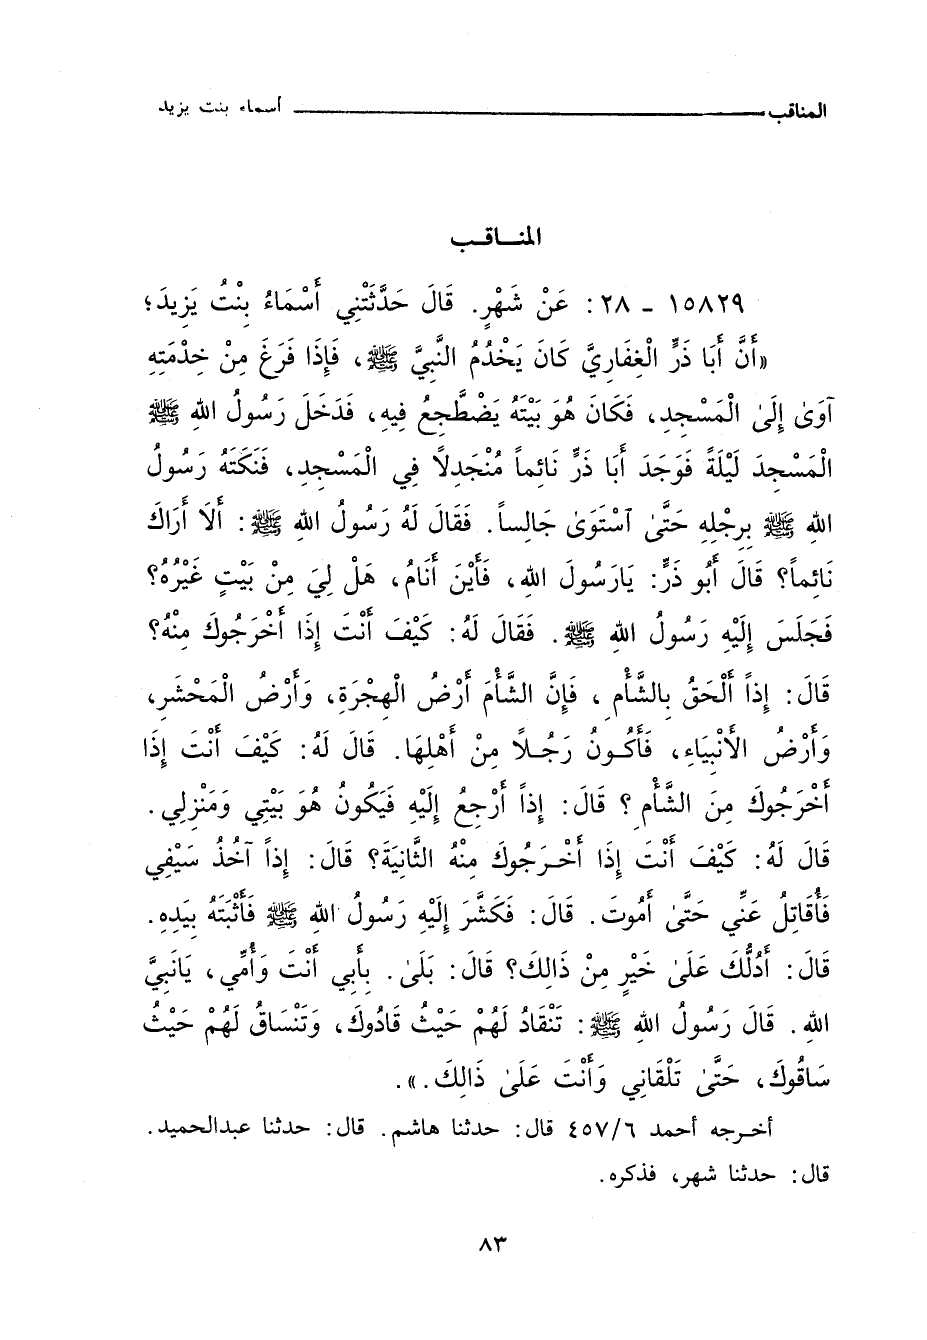 المناقب أسماء بنت يزيد
المنـاقـب
١٥٨٢٩ - ٢٨: عَنْ شَهْرٍ. قَالَ حَدَّثَتْنِي أَسْمَاءُ بِنْتُ يَزِيدَ؛
«أَنَّ أَبَا ذَرٍّ الْغِفَارِيَّ كَانَ يَخْدُمُ النَّبِيَّ ﷺ، فَإِذَا فَرَغَ مِنْ خِدْمَتِهِ
آوَىٰ إِلَىٰ الْمَسْجِدِ، فَكَانَ هُوَ بَيْتَهُ يَضْطَّجِعُ فِيهِ، فَدَخَلَ رَسُولُ اللهِ ﷺ
الْمَسْجِدَ لَيْلَةً فَوَجَدَ أَبَا ذَرٍّ نَائِماً مُنْجَدِلاً فِي الْمَسْجِدِ، فَنَكَتَهُ رَسُولُ
اللهِ ﷺ بِرِجْلِهِ حَتَّىٰ اسْتَوَىٰ جَالِساً. فَقَالَ لَهُ رَسُولُ اللهِ ﷺ: أَلَا أَرَاكَ
نَائِماً؟ قَالَ أَبُو ذَرٍّ: يَارَسُولَ اللهِ، فَأَيْنَ أَنَامُ، هَلْ لِيَ مِنْ بَيْتٍ غَيْرُهُ؟
فَجَلَسَ إِلَيْهِ رَسُولُ اللهِ ﷺ. فَقَالَ لَهُ: كَيْفَ أَنْتَ إِذَا أَخْرَجُوكَ مِنْهُ؟
قَالَ: إِذاً أَلْحَقُ بِالشَّأْمِ، فَإِنَّ الشَّأْمَ أَرْضُ الْهِجْرَةِ، وَأَرْضُ الْمَحْشَرِ،
وَأَرْضُ الأَنْبِيَاءِ، فَأَكُونُ رَجُلاً مِنْ أَهْلِهَا. قَالَ لَهُ: كَيْفَ أَنْتَ إِذَا
أَخْرَجُوكَ مِنَ الشَّأْمِ؟ قَالَ: إِذاً أَرْجِعُ إِلَيْهِ فَيَكُونُ هُوَ بَيْتِي وَمَنْزِلِي.
قَالَ لَهُ: كَيْفَ أَنْتَ إِذَا أَخْرَجُوكَ مِنْهُ الثَّانِيَةَ؟ قَالَ: إِذاً آخُذُ سَيْفِي
فَأُقَاتِلُ عَنِّي حَتَّىٰ أَمُوتَ. قَالَ: فَكَشَّرَ إِلَيْهِ رَسُولُ اللهِ ﷺ فَأَثْبَتَهُ بِيَدِهِ.
قَالَ: أَدُلُّكَ عَلَىٰ خَيْرٍ مِنْ ذَالِكَ؟ قَالَ: بَلَىٰ. بِأَبِي أَنْتَ وَأُمِّي، يَانَبِيَّ
اللهِ. قَالَ رَسُولُ اللهِ ﷺ: تَنْقَادُ لَهُمْ حَيْثُ قَادُوكَ، وَتَنْسَاقُ لَهُمْ حَيْثُ
سَاقُوكَ، حَتَّىٰ تَلْقَانِي وَأَنْتَ عَلَىٰ ذَالِكَ.».
أخرجه أحمد ٤٥٧/٦ قال: حدثنا هاشم. قال: حدثنا عبدالحميد.
قال: حدثنا شهر، فذكره.
٨٣